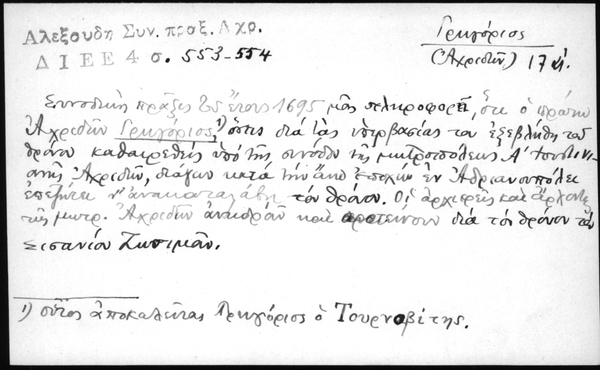 Αλεξουδη Συν. πραξ. Αχρ.
Γρηγόριος
ΔΙΕΕ 4 σ. 553-554
(Ἀχριδῶν) 17 αἰ.
Συνοδικὴ πρᾶξις τοῦ ἔτους 1695 μᾶς πληροφορεῖ, ὅτι ὁ πρώην
Ἀχριδῶν Γρηγόριος,¹⁾ ὅστις διὰ τὰς ὑπερβασίας του ἐξεβλήθη τοῦ
θρόνου καθαιρεθεὶς ὑπὸ τῆς συνόδου τῆς μητροπόλεως Α' Ἰουστινι
ανῆς Ἀχριδῶν, διάγων κατὰ τὴν ἐποχὴν ἐν Ἀδριανουπόλει
ἐπεζήτει ν' ἀνακαταλάβῃ τὸν θρόνον. Οἱ ἀρχιερεῖς καὶ ἄρχοντες
τῆς μητρ. Ἀχριδῶν καὶ προτείνουν διὰ τὸν θρόνον τὸν
Σισανίου Ζωσιμᾶν.
1) οὗτος ἀποκαλεῖται Γρηγόριος ὁ Τουρνοβίτης.